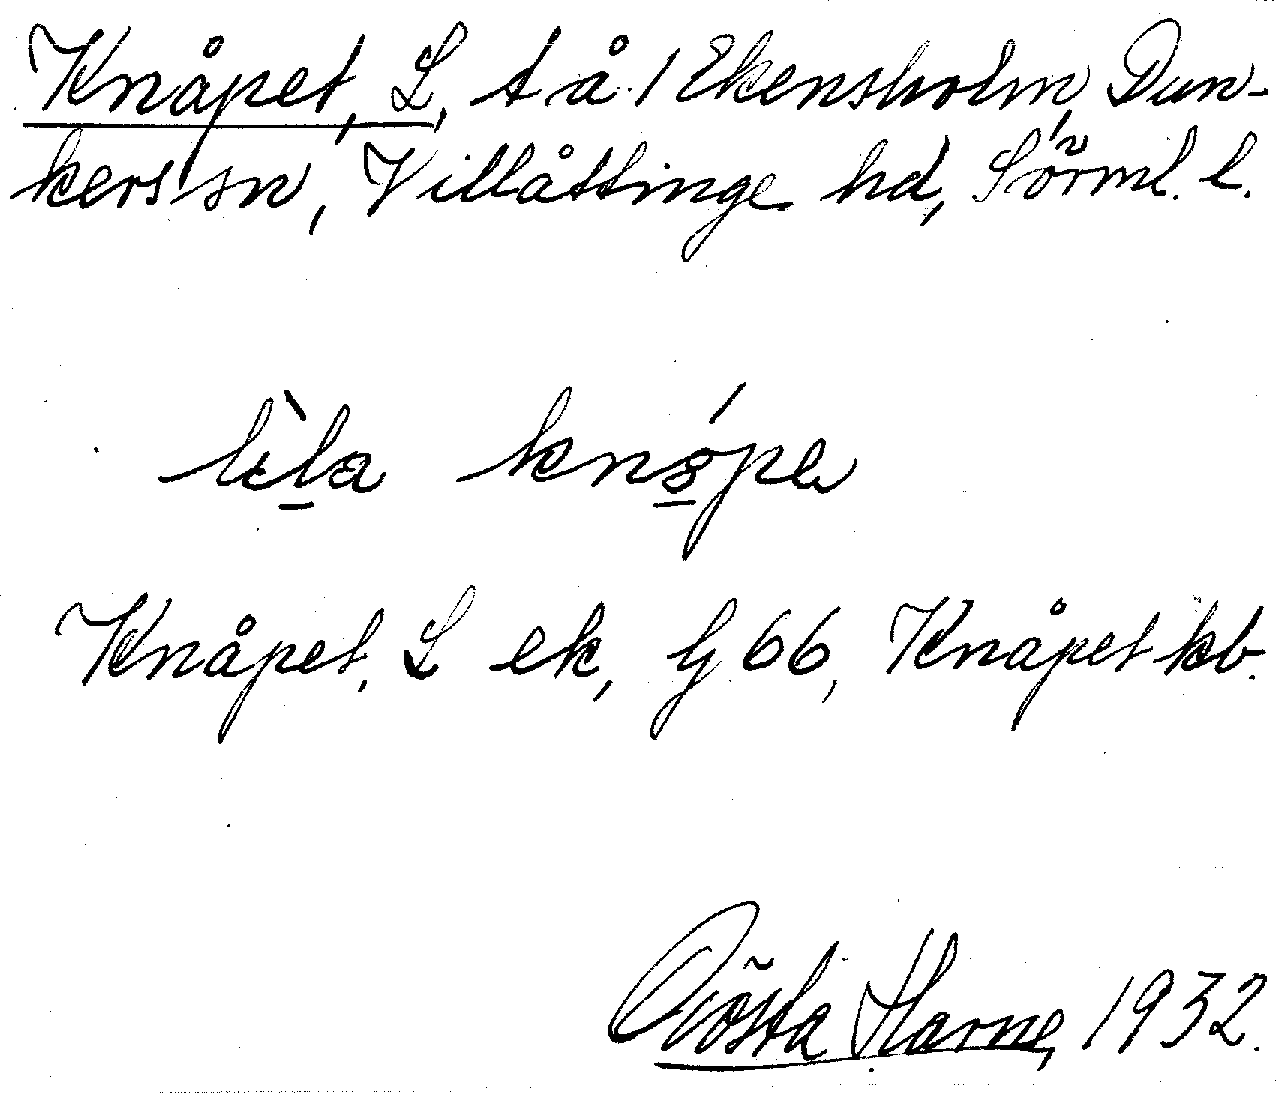 Knåpet, L, t å 1 Ekensholm, Dun-
kers sn, Villåttinge hd, Sörml. l.
lìla
Knåpet, L ek, G 66, Knåpet kb.
Gösta Harne, 1932.